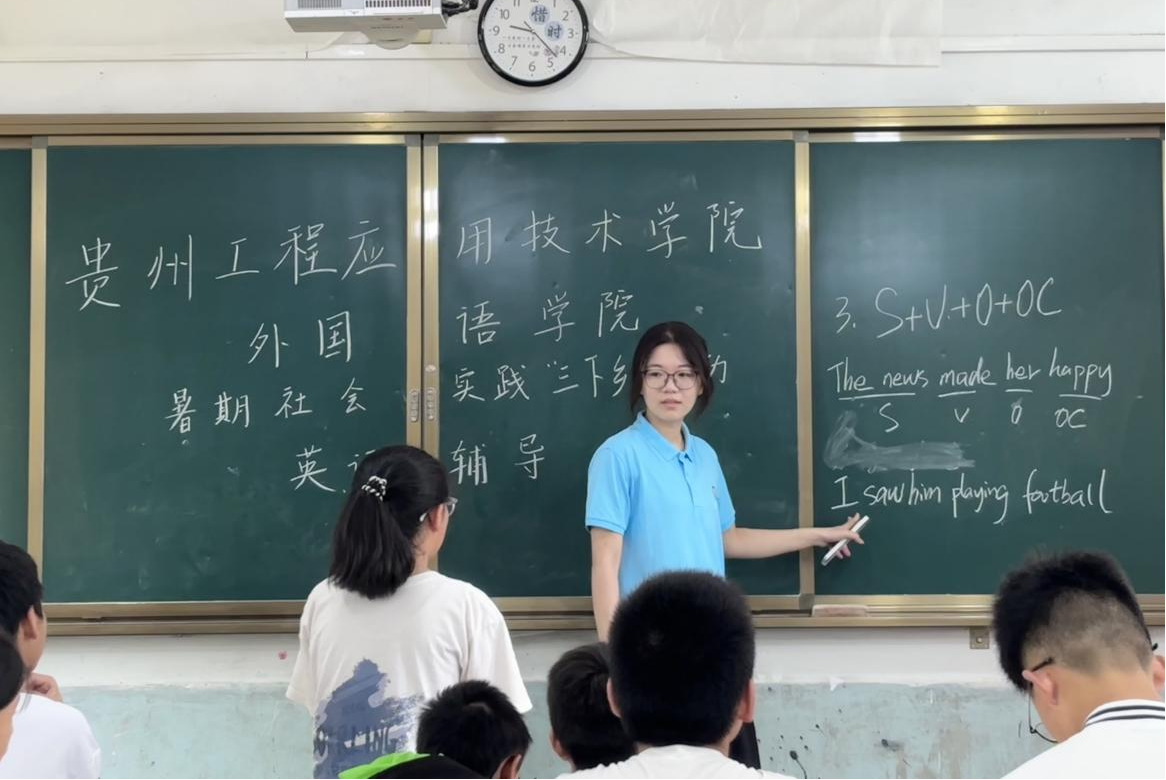 惜时
10 2 9 3 8 4 7 6 5
贵州工程应用技术学院
外国语学院
暑期社会实践"三下乡 动
英语辅导
3. S+V+O+OC
The news made her happy
S V O OC
I saw him playing football